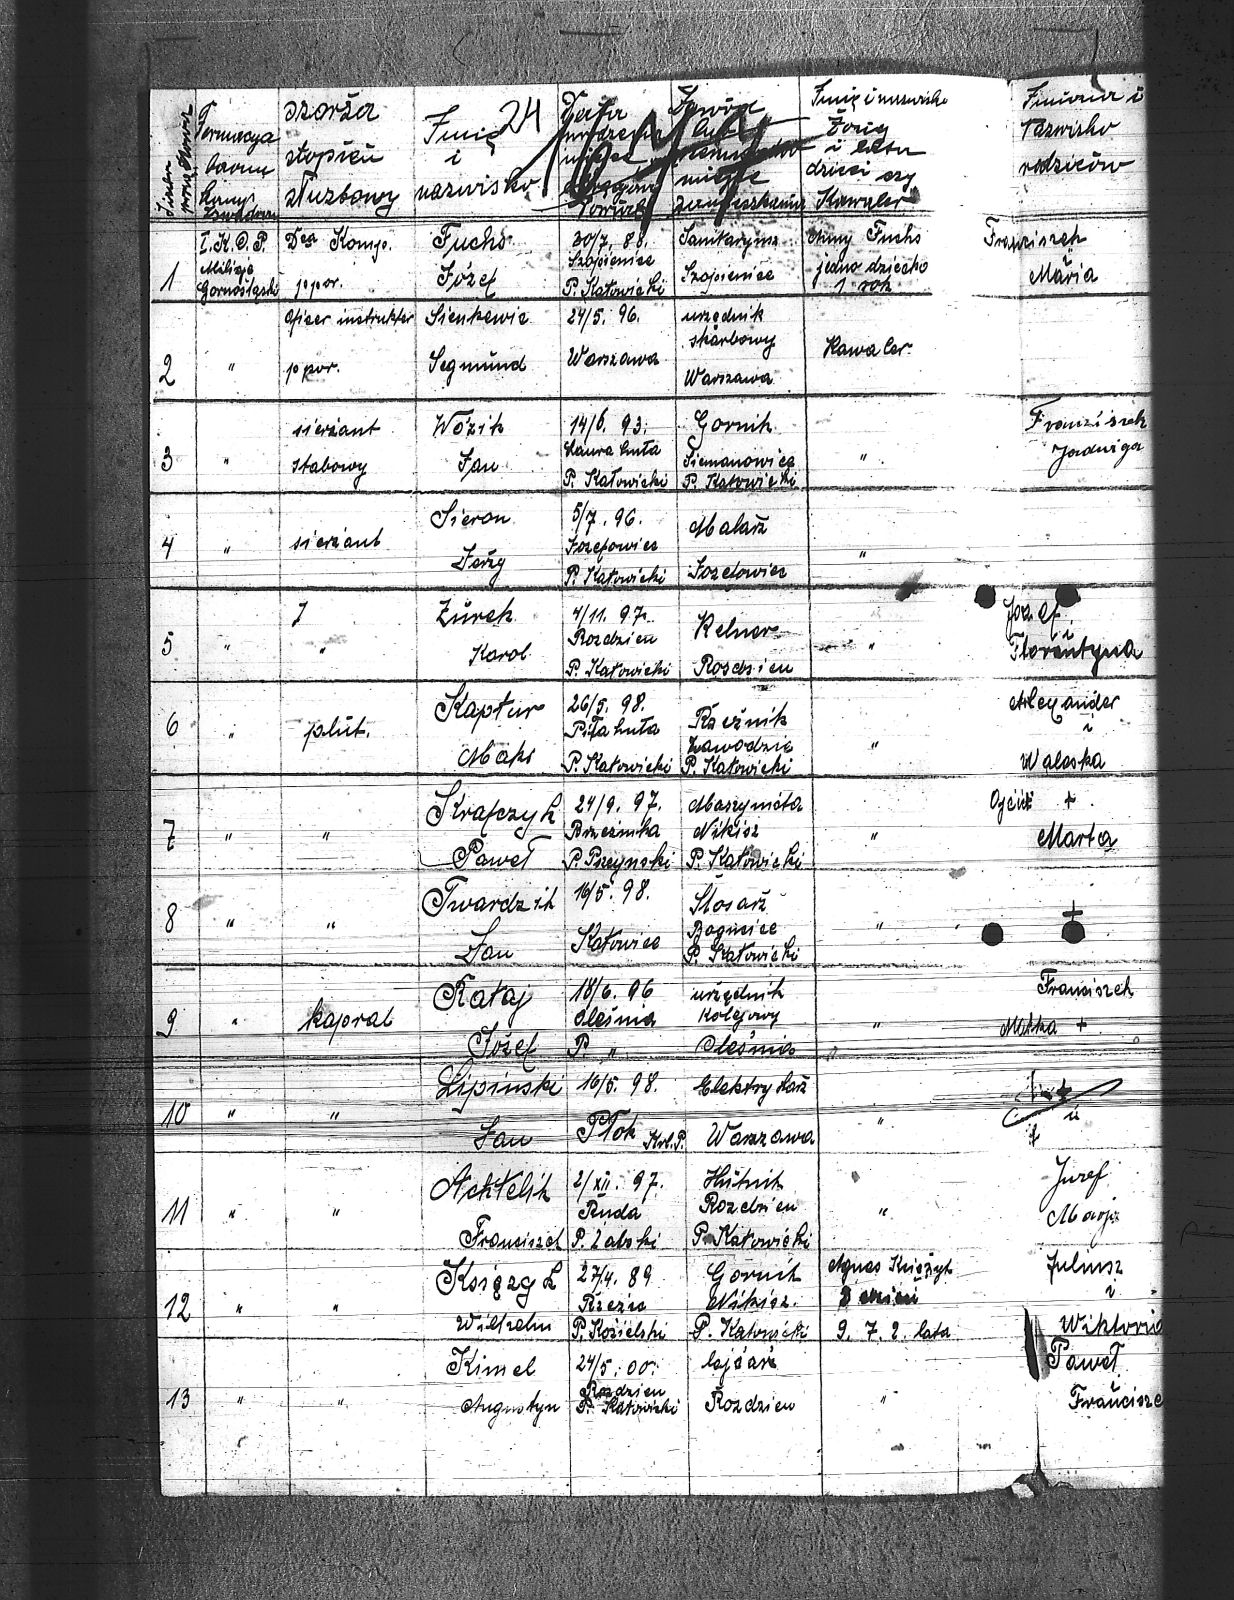 Formacya
szarża
stopień
służbowy
Imię
i
nazwisko
24
Data
Zawód
miejsce
Imię i nazwisko
Żony
i lata
dzieci czy
Kawaler
Imiona i
Nazwisko
rodziców
1
I. K. O. P.
Milicja
Gornośląski
Komp.
ppor.
Fuchs
Józef
30/7. 88.
Szopienice
P. Katowicki
Sanitaryusz
Szopienice
Anny Fuchs
jedno dziecko
1 rok
Franziszek
i
Maria
2
"
oficer instrukter
ppor.
Sienkewic
Segmund
24/5. 96.
Warszawa
urzędnik
skarbowy
Warszawa
Kawaler.
3
"
sierżant
stabowy
Wozik
Jan
14/6. 93.
Laura huta
P. Katowicki
Gornik
Siemanowice
P. Katowicki
"
Franziszek
Jadwiga
4
"
sierżant
Sieron
Jeży
5/7. 96.
Jozefowiec
P. Katowicki
Malarž
Jozefowiec
"
5
"
"
Żurek
Karol
4/11. 97.
Rozdzien
P. Katowicki
Kelner
Rosdzien
"
Jozef.
i
Florentyna
6
"
plut.
Kaptur
Maks
26/5. 98.
Piła huta
P. Katowicki
Rzežnik
Zawodzie
P. Katowicki
"
Alexander
i
Waleska
7
"
"
Krafczyk
Paweł
24/9. 97.
Brzežinka
P. Pszynski
Maszynista
Nikisz
P. Katowicki
"
Ojciec +
Marta
8
"
"
Twardzik
Jan
16/5. 98.
Katowice
Ślosarž
Bogucice
P. Katowicki
"
+
9
"
kapral
Rataj
Józef
18/6. 96
Oleśnia
P "
urzędnik
kolejowy
Oleśnia
"
Fransiszek
Matka +
10
"
"
Lipinski
Jan
16/5. 98.
Płok Krl. P.
Elektrykarž
Warszawa
"
11
"
"
Achtelik
Fransiszek
2/XII. 97.
Ruda
P. Zabski
Hutnik
Rozdzien
P. Katowicki
"
Juzef
Marja
12
"
"
Księżyk
Wilhelm
27/4. 89
P. Kozielski
Gornik
Nikisz.
P. Katowicki
Agnes Księżyk
3 dzieci
9. 7. 2. lata
Juliusz
i
Wiktoria
13
"
"
Kimel
Augustyn
24/5. 00.
Rozdzien
P. Katowicki
Rozdzien
"
Paweł